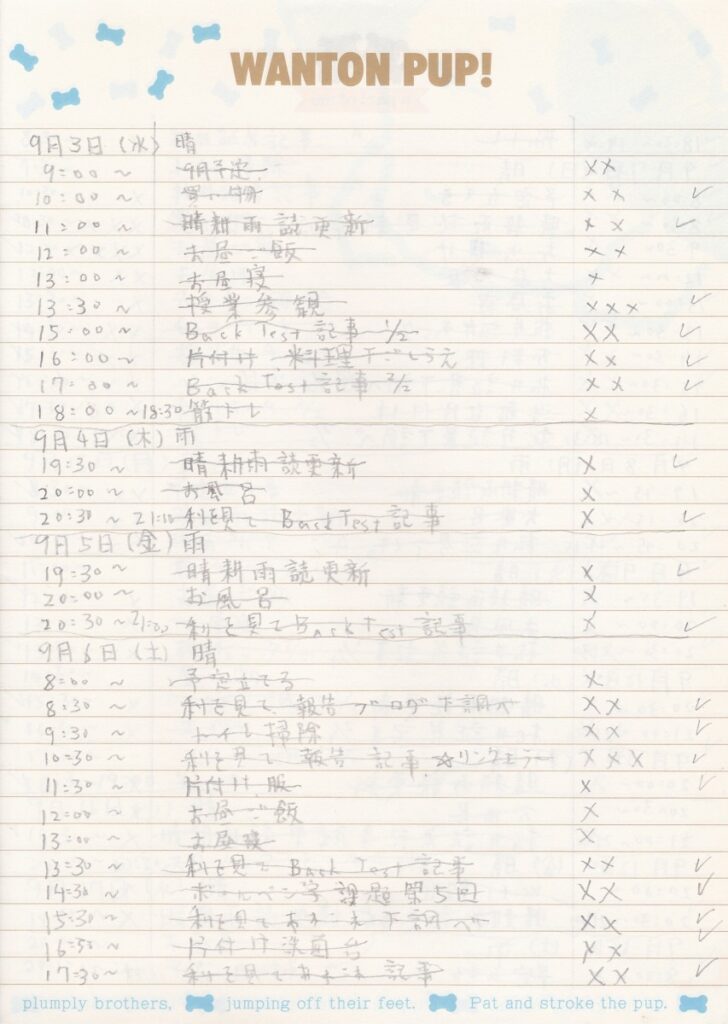 WANTON PUP!
9月3日(水) 晴
9:00 ~ 9月予定 xx
10:00 ~ 買い物 xx ✓
11:00 ~ 晴耕雨読更新 xx ✓
12:00 ~ お昼ご飯 xx
13:00 ~ お昼寝 x
13:30 ~ 授業参観 xxx ✓
15:00 ~ Back Test 記事 1/2 xx ✓
16:00 ~ 片付け 料理下ごしらえ xx ✓
17:00 ~ Back Test 記事 2/2 xx ✓
18:00 ~18:30 筋トレ x
9月4日(木) 雨
19:30 ~ 晴耕雨読更新 x ✓
20:00 ~ お風呂 x
20:30 ~ 21:10 利を見て Back Test 記事 x ✓
9月5日(金) 雨
19:30 ~ 晴耕雨読更新 x ✓
20:00 ~ お風呂 x
20:30 ~21:00 利を見て Back Test 記事 x ✓
9月6日(土) 晴
8:00 ~ 予定立てる x
8:30 ~ 利を見て 報告 ブログ下調べ xx ✓
9:30 ~ トイレ掃除 xx ✓
10:30 ~ 利を見て 報告 記事 ☆リンクエラー xxx ✓
11:30 ~ 片付け 服 x ✓
12:00 ~ お昼ご飯 x
13:00 ~ お昼寝 x
13:30 ~ 利を見て Back Test 記事 xx ✓
14:30 ~ ボールペン字 課題 第5回 xx ✓
15:30 ~ 利を見て あれこれ 下調べ xx ✓
16:30 ~ 片付け 洗面台 xx ✓
17:30 ~ 利を見て あれこれ 記事 xx ✓
plumply brothers, jumping off their feet. Pat and stroke the pup.